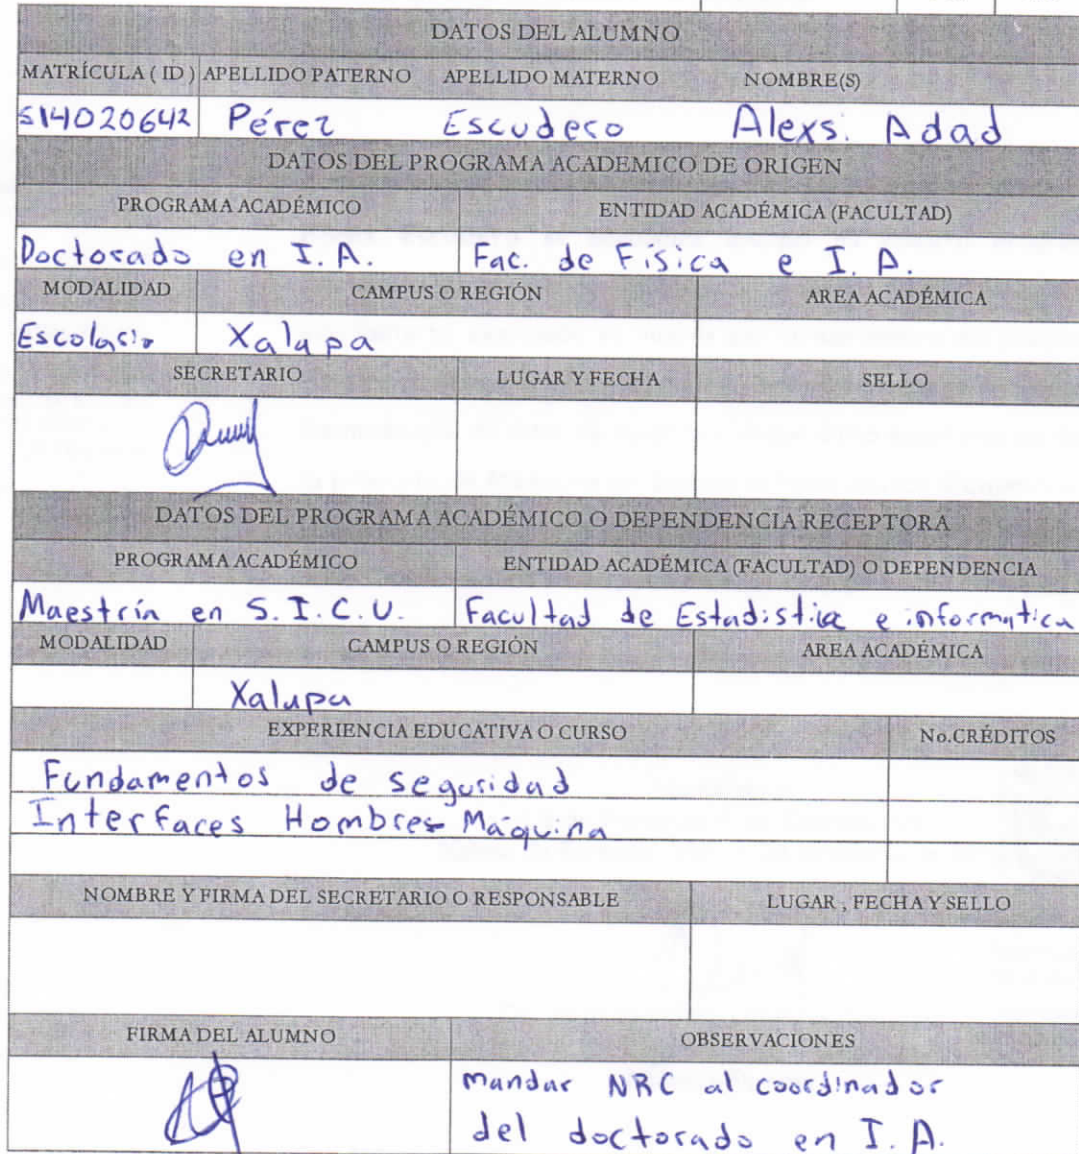 DATOS DEL ALUMNO
MATRÍCULA ( ID ) APELLIDO PATERNO APELLIDO MATERNO NOMBRE(S)
S14020642 Pérez Escudero Alexs. Adad
DATOS DEL PROGRAMA ACADEMICO DE ORIGEN
PROGRAMA ACADÉMICO ENTIDAD ACADÉMICA (FACULTAD)
Doctorado en I.A. Fac. de Física e I.A.
MODALIDAD CAMPUS O REGIÓN AREA ACADÉMICA
Escolario Xalapa
SECRETARIO LUGAR Y FECHA SELLO
DATOS DEL PROGRAMA ACADÉMICO O DEPENDENCIA RECEPTORA
PROGRAMA ACADÉMICO ENTIDAD ACADÉMICA (FACULTAD) O DEPENDENCIA
Maestrín en S.I.C.U. Facultad de Estadistica e informatica
MODALIDAD CAMPUS O REGIÓN AREA ACADÉMICA
Xalapa
EXPERIENCIA EDUCATIVA O CURSO No.CRÉDITOS
Fundamentos de seguridad
Interfaces Hombre-Máquina
NOMBRE Y FIRMA DEL SECRETARIO O RESPONSABLE LUGAR , FECHA Y SELLO
FIRMA DEL ALUMNO OBSERVACIONES
mandar NRC al coordinador
del doctorado en I.A.